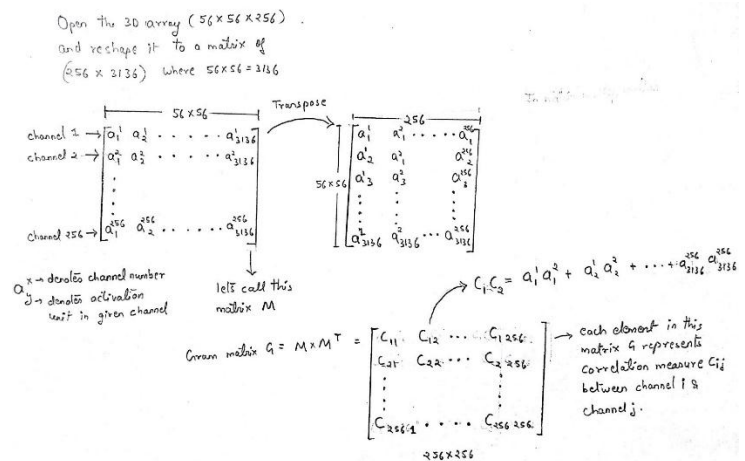 Open the 3D array (56×56×256)
and reshape it to a matrix of
(256 × 3136) where 56×56 = 3136
56×56
Transpose
256
channel 1 → a₁¹ a₂¹ . . . . . a¹₃₁₃₆
channel 2 → a₁² a₂² . . . . . a²₃₁₃₆
channel 256 → a₁²⁵⁶ a₂²⁵⁶ . . . . . a²⁵⁶₃₁₃₆
56×56
a₁¹ a₁² . . . . . a₁²⁵⁶
a₂¹ a₁² a₂²⁵⁶
a₃¹ a₃² a₃²⁵⁶
a¹₃₁₃₆ a²₃₁₃₆ . . . a²⁵⁶₃₁₃₆
a x → denotes channel number
y → denotes activation
unit in given channel
lets call this
matrix M
C₁C₂ = a₁¹ a₁² + a₂¹ a₂² + . . . + a²⁵⁶₃₁₃₆ a²⁵⁶₃₁₃₆
Gram matrix G = M × Mᵀ =
C₁₁ C₁₂ . . . C₁ ₂₅₆
C₂₁ C₂₂ . . . C₂ ₂₅₆
C₂₅₆ ₁ . . . . C₂₅₆ ₂₅₆
256×256
→ each element in this
matrix G represents
correlation measure Cᵢⱼ
between channel i &
channel j.